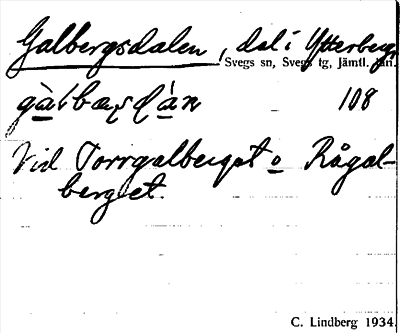 Galbergsdalen, dal i Ytterberg,
Svegs sn, Svegs tg, Jämtl. län.
108
Vid Torrgalberget o Rågal-
berget.
C. Lindberg 1934